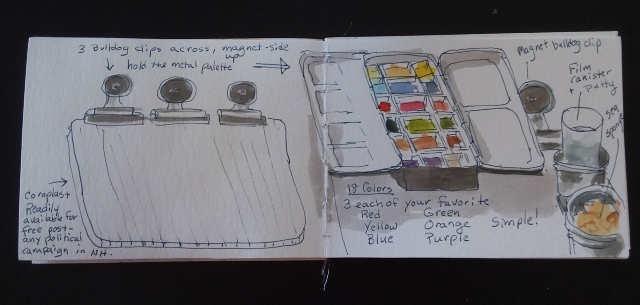 3 Bulldog clips across, magnet-side up
hold the metal palette
Coroplast
Readily
available for
free post-
any political
campaign in NH.
magnet bulldog clip
Film
canister
+ putty
sea
sponge
18 Colors
3 each of your favorite
Red Green
Yellow Orange Simple!
Blue Purple